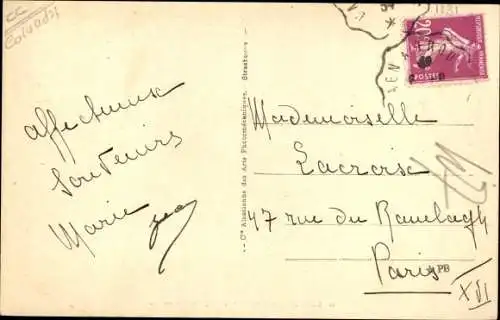 CC
Calvados
affectueux
Souvenirs
Marie
Cie Alsacienne des Arts Photomécaniques, Strasbourg
20c
POSTES
Mademoiselle
Lacroix
47 rue du Ranelagh
Paris
XVI
APB